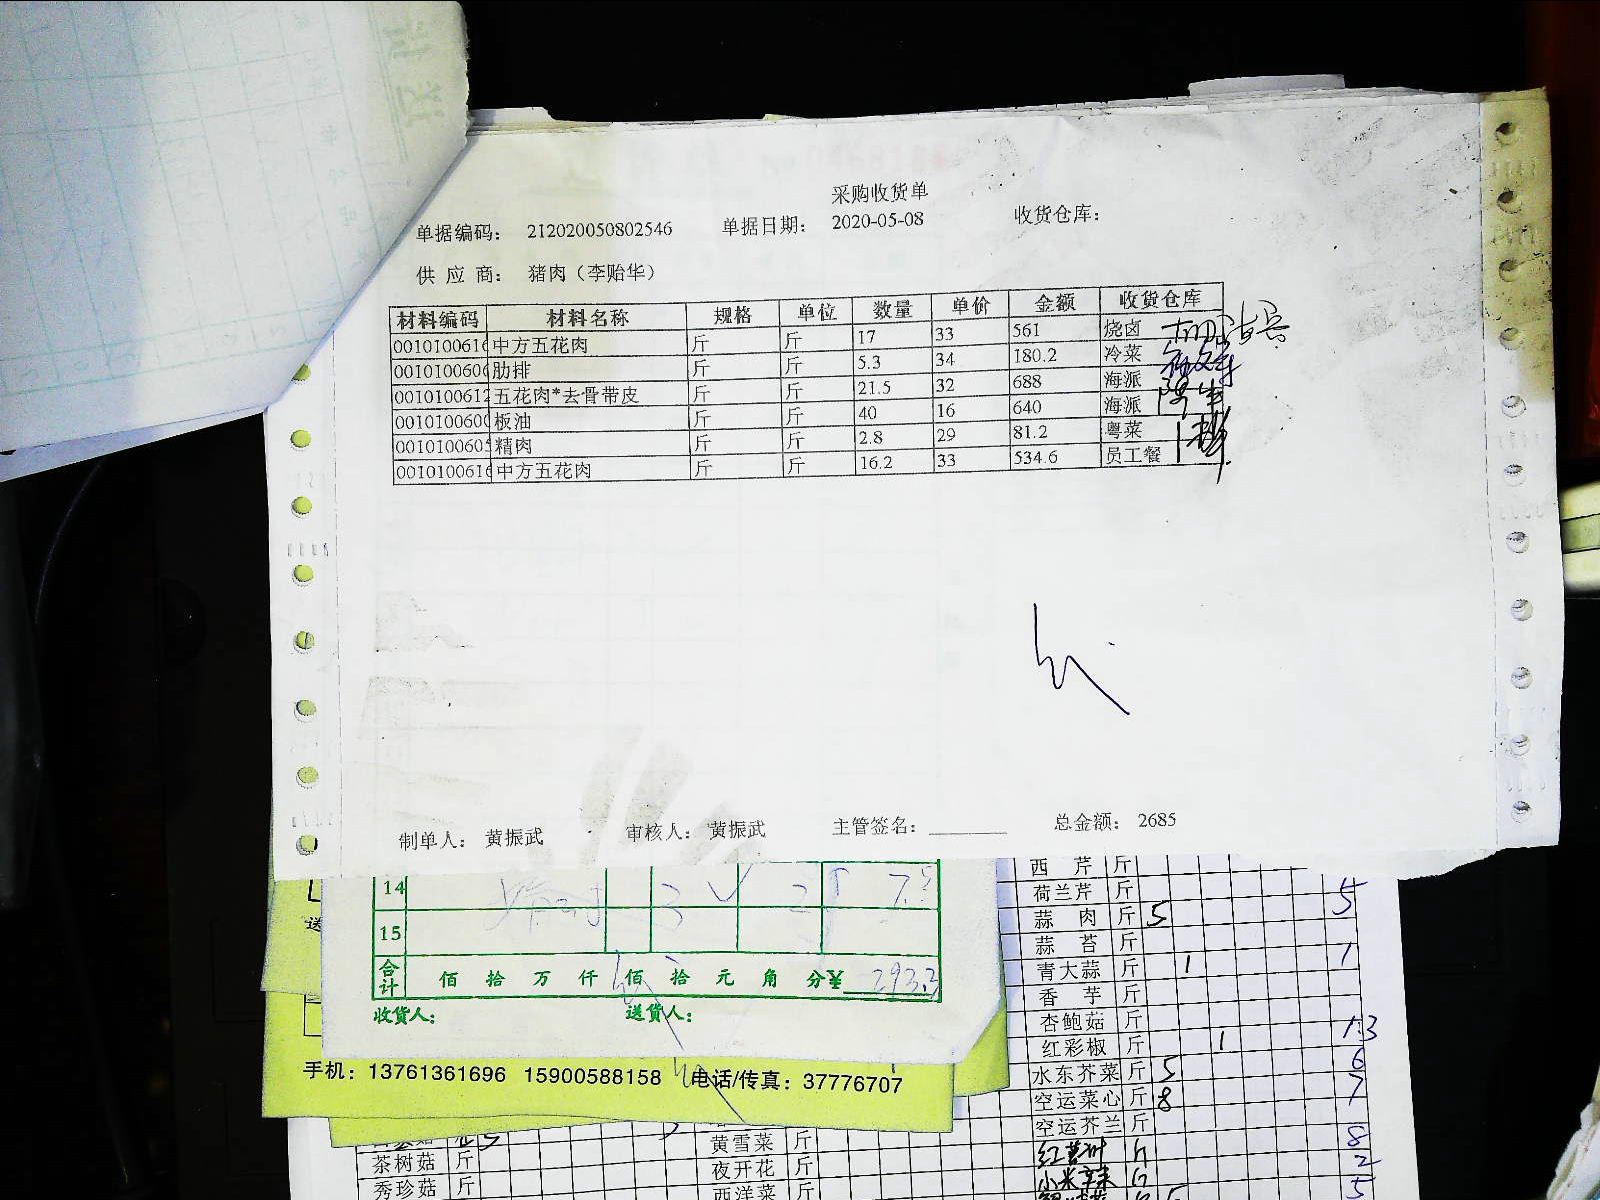 采购收货单
单据编码： 212020050802546 单据日期： 2020-05-08 收货仓库：
供 应 商： 猪肉（李贻华）
材料编码 材料名称 规格 单位 数量 单价 金额 收货仓库
0010100616 中方五花肉 斤 斤 17 33 561 烧卤
0010100606 肋排 斤 斤 5.3 34 180.2 冷菜
0010100612 五花肉*去骨带皮 斤 斤 21.5 32 688 海派
0010100600 板油 斤 斤 40 16 640 海派
0010100605 精肉 斤 斤 2.8 29 81.2 粤菜
0010100616 中方五花肉 斤 斤 16.2 33 534.6 员工餐
制单人： 黄振武 审核人： 黄振武 主管签名： 总金额： 2685
14 3 7.5
15
合计 佰 拾 万 仟 佰 拾 元 角 分 ¥ 293.3
收货人： 送货人：
手机：13761361696 15900588158 电话/传真：37776707
西 芹 斤
荷兰芹 斤 5
蒜 肉 斤 5
蒜 苔 斤
青大蒜 斤 1 1
香 芋 斤
杏鲍菇 斤
红彩椒 斤 1 1.3
水东芥菜 斤 5 6
空运菜心 斤 8 7
空运芥兰 斤
黄雪菜 斤 8
茶树菇 斤 夜开花 斤 小米辣 2
秀珍菇 斤 西洋菜 斤 5